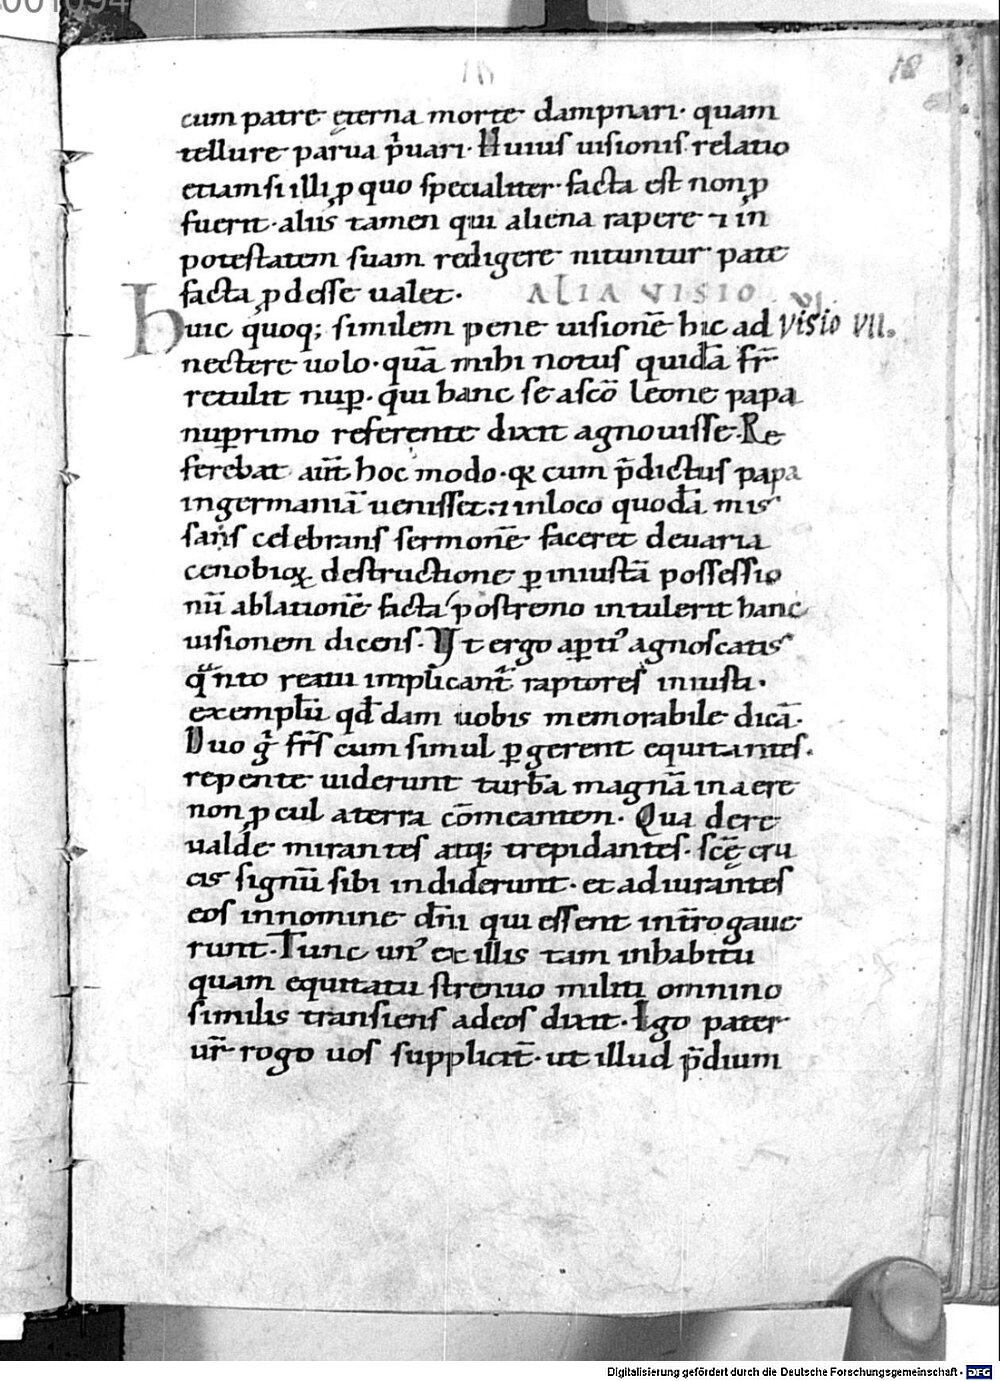 001094
18
cum patre ęterna morte dampnari· quam
tellure parua p̄uari· Huius uisionis relatio
etiamsi illi ꝓ quo specialiter facta est non ꝓ
fuerit· aliis tamen qui aliena rapere ⁊ in
potestatem suam redigere nituntur pate
facta ꝓdesse ualet· ALIA VISIO
Huic quoq; similem pene uisionē hic ad visio VII.
nectere uolo· quā mihi notus quidā fr̄
retulit nup̄· qui hanc se a sc̄o leone papa
nuꝑrimo referente dixit agnouisse· Re
ferebat aut̄ hoc modo· qꝫ cum p̄dictus papa
in germaniā uenisset· ⁊ in loco quodā mis
sarū celebrans sermonē faceret de uaria
cenobioꝝ destructione ꝑ iniustā possessio
nū ablationē facta postremo intulerit hanc
uisionem dicens· Vt ergo aꝑti᷒ agnoscatis
qͣnto reatu implicant̄ raptores iniusti·
exemplū qd̄dam uobis memorabile dicā·
Duo gͥ fr̄s cum simul ꝑgerent equitantes·
repente uiderunt turbā magnā in aere
non ꝓcul a terra cōmeantem· Qua de re
ualde mirantes atq; trepidantes· sc̄ę cru
cis signū sibi indiderunt· et adiurantes
eos in nomine dn̄i qui essent int̄rogaue
runt· Tunc un᷒ ex illis tam in habitu
quam equitatu strenuo militi omnino
similis transiens ad eos dixit· Ego pater
ur̄ rogo uos supplicit̄· ut illud p̄dium
Digitalisierung gefördert durch die Deutsche Forschungsgemeinschaft - DFG